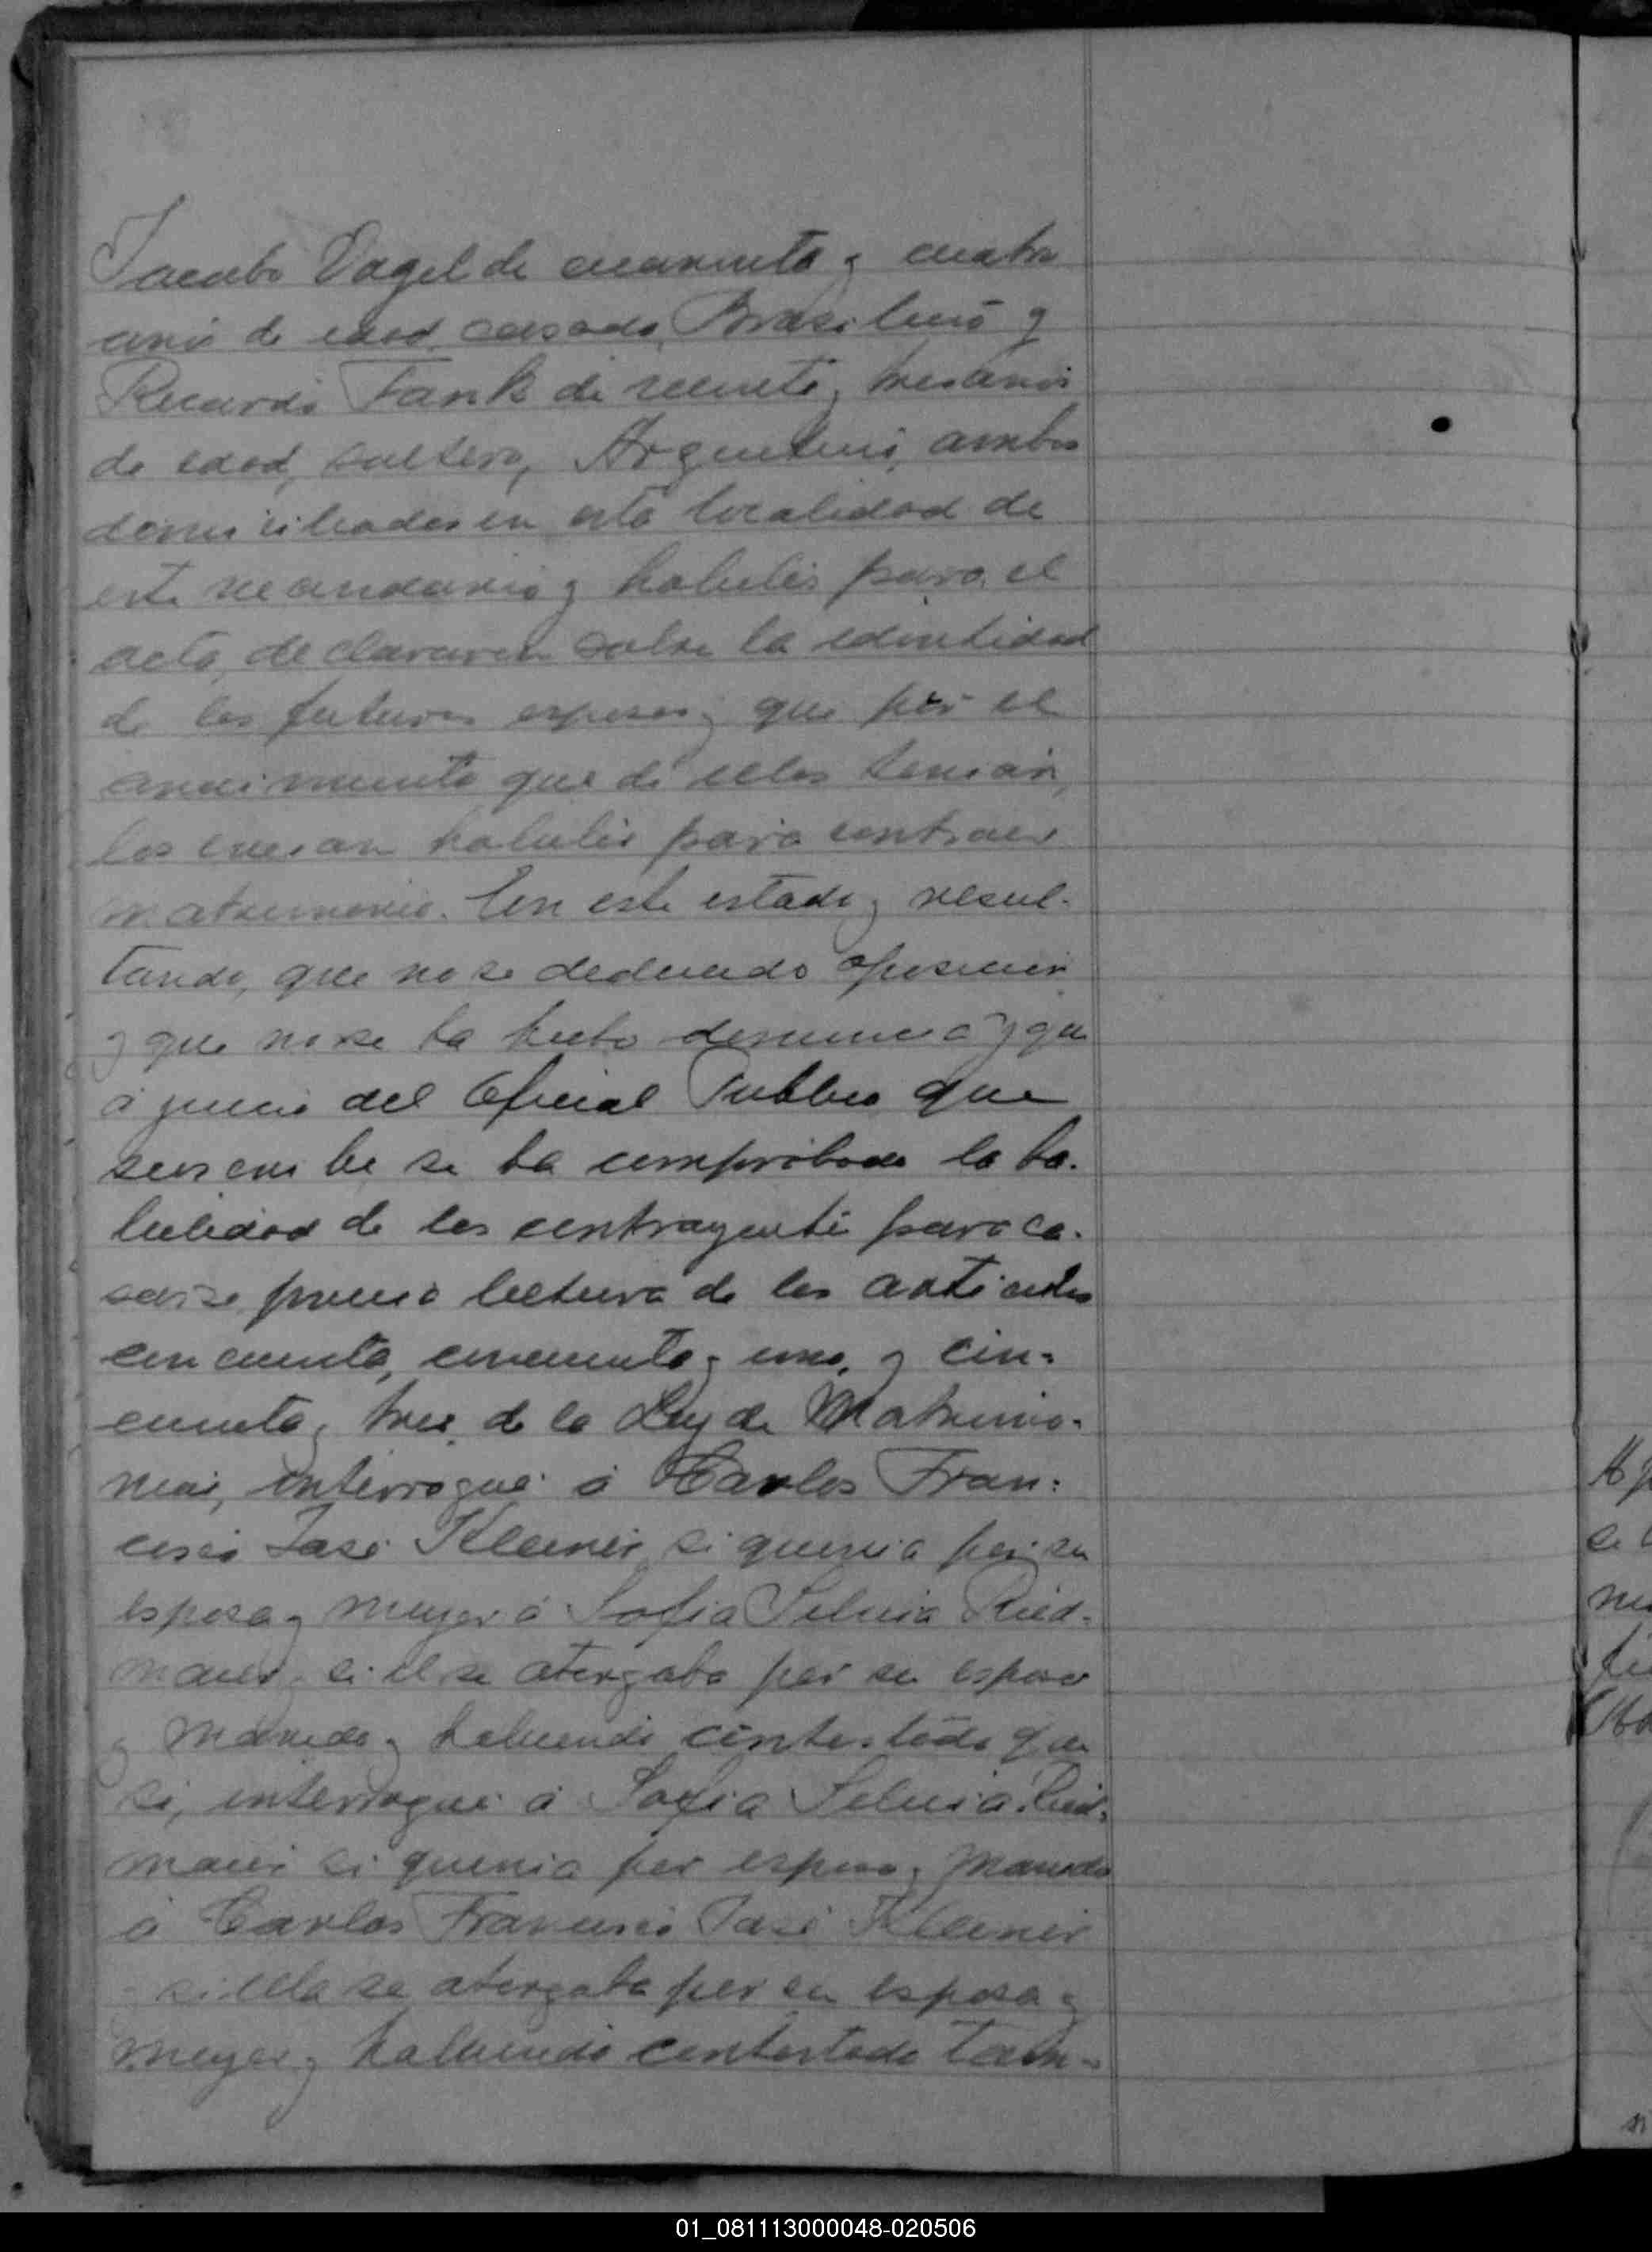 Jacobo Vogel de cuarenta y cuatro
años de edad, casado, Brasilero y
Ricardo Fank de veinte y tres años
de edad, soltero, Argentino, ambos
domiciliados en esta localidad de
este vecindario y habiles para el
acto, declararon sobre la identidad
de los futuros esposos y que por el
conocimiento que de ellos tenian,
los creian habiles para contraer
matrimonio. En este estado y resul-
tando, que no se deducido oposicion
y que no se ha hecho denuncia y que
á juicio del Oficial Publico que
suscribe se ha comprobado la ha-
bilidad de los contrayentes para ca-
sarse previo lectura de los articulos
cincuenta, cincuenta y uno, y cin-
cuenta y tres de la Ley de Matrimo-
nio, interrogué á Carlos Fran-
cisco José Kleiner si queria por su
esposa y mujer á Sofia Silvia Ried-
maier y si él se otorgaba por su esposo
y marido y habiendo contestado que
si, interrogué á Sofia Silvia Ried-
maier si queria por esposo y marido
á Carlos Francisco José Kleiner
y si ella se otorgaba por su esposa y
mujer y habiendo contestado tam-
01_081113000048-020506